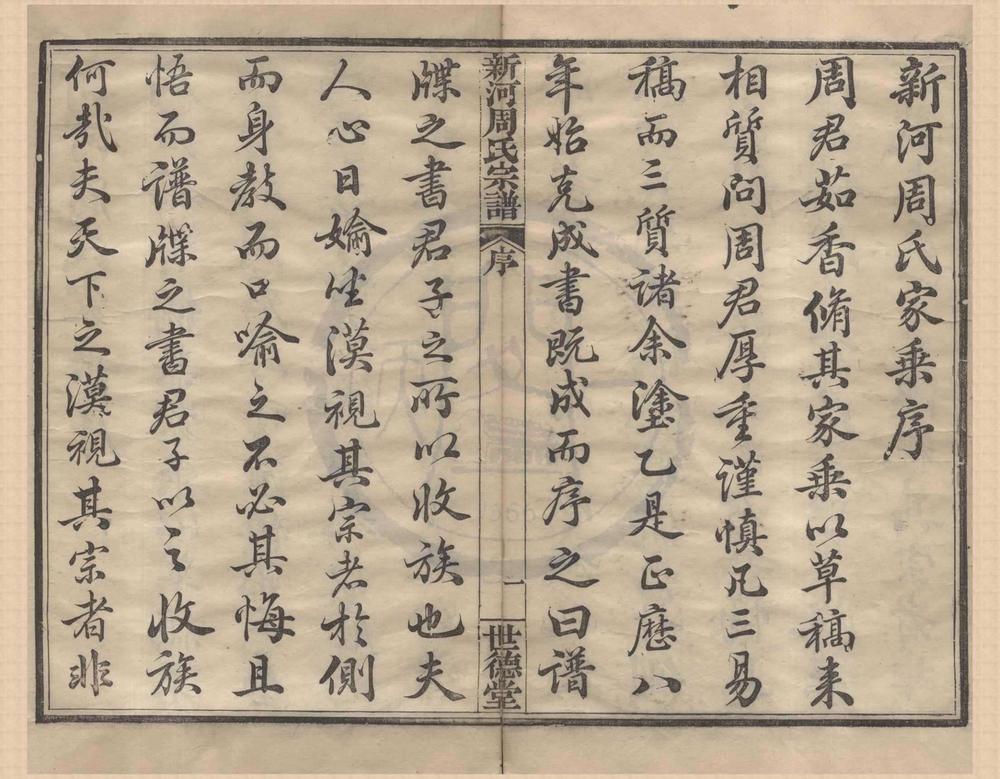 新河周氏家乗序
周君茹香脩其家乗以草稿来
相質問周君厚重謹慎凡三易
稿而三質諸余塗乙是正歷八
年始克成書既成而序之曰譜
新河周氏宗譜 序 一 世德堂
牒之書君子之所以收族也夫
人心日婾坐漠視其宗者於側
而身教而口喻之不必其悔且
悟而譜牒之書君子以之收族
何哉夫天下之漠視其宗者非